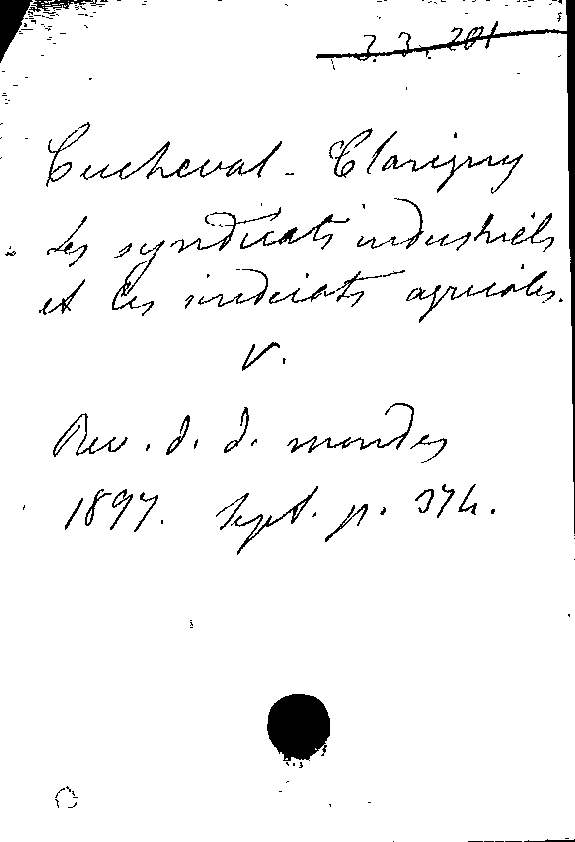 3.3.201
Cucheval-Clarigny
Les syndicats industriels
et les sindicats agricoles.
V.
Rev. d. d. mondes
1897. Sept. p. 374.